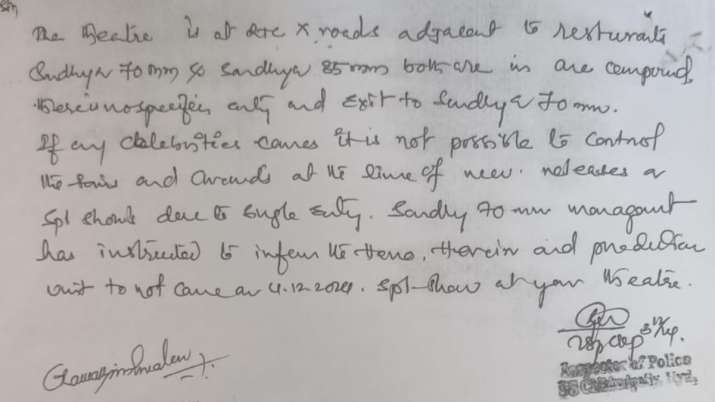 The Theatre is at RTC X roads adjacent to resturants
Sandhya 70 mm so Sandhya 35 mm both are in one compound,
There is no specific entry and Exit to Sandhya 70 mm.
If any Celebrities comes it is not possible to control
the fans and crowds at the time of new releases or
Spl shows due to single entry. Sandhya 70 mm managment
has instructed to inform the Hero, Heroin and production
unit to not come on 4.12.2024. Spl-Show at your Theatre.
Inspector of Police